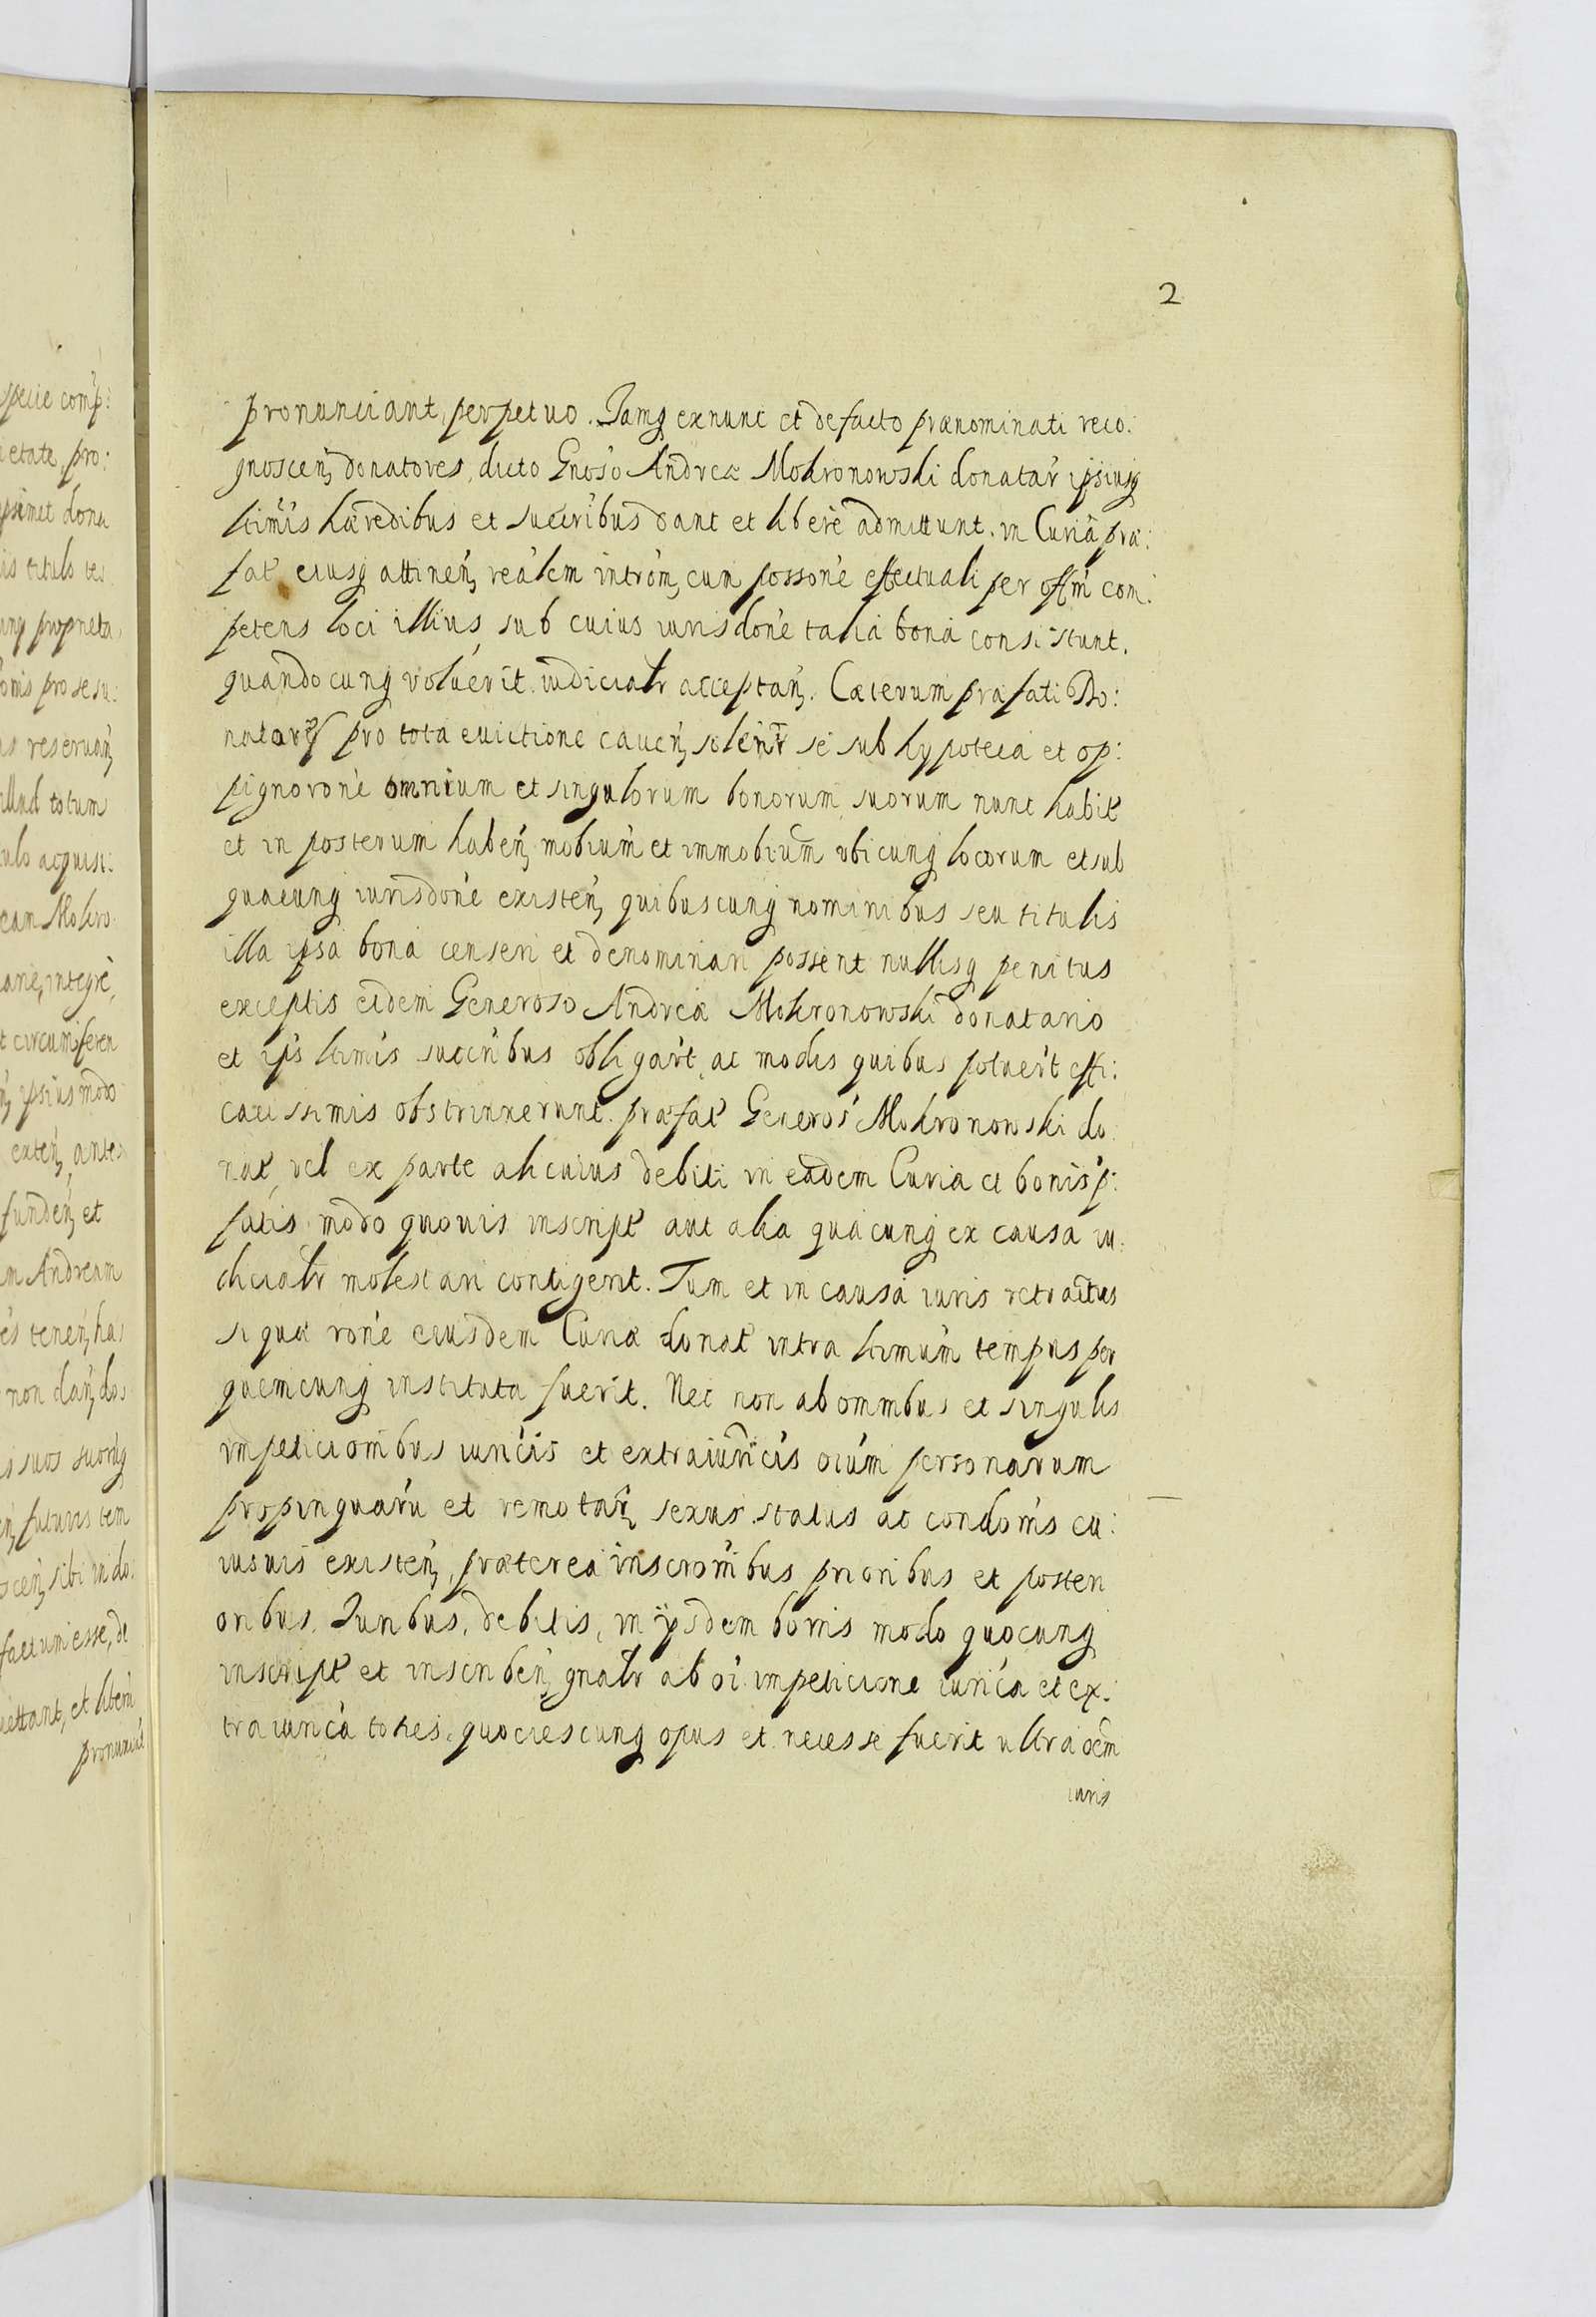 2
pronunciant, perpetuo. Jamq exnunc et defacto prænominati reco:
gnoscen, donatores, dicto Gnoso Andreæ Mokronowski donatar ipsiusq
ltimis hæredibus et succribus dant et libere admittunt. in Curia præ:
fat eiusq attinen, realem introm, cum possone effectuali per offm com:
petens loci illius sub cuius iurisdone talia bona consistunt.
quandocunq voluerit iudicialr acceptan. Cæterum præfati Do:
natores pro tota euictione cauen, solenr se sub hypoteca et op:
pignorone omnium et singulorum bonorum suorum nunc habit
et in posterum haben, mobium et immobium vbicunq locorum et sub
quacunq iurisdone existen, quibuscunq nominibus seu titulis
illa ipsa bona censeri et denominari possent nullisq penitus
exceptis eidem Generoso Andreæ Mokronowski donatario
et ips ltimis succribus obligart, ac modis quibus potuerit effi:
cacissimis obstrinxerunt. præfat Generos Mokronowski do:
nat, vel ex parte alicuius debiti in eadem Curia et bonis p:
fatis modo quouis inscript aut alia quacunq ex causa iu:
diciatr molestari contigerit. Tum et in causa iuris retractus
si quæ rone eiusdem Curiæ donat intra ltimum tempus per
quemcunq instituta fuerit. Nec non ab omnibus et singulis
impeticionibus iuricis et extraiuricis oium personarum
propinquaru et remotar, sexus status ac condonis cu:
iusuis existen, præterea inscronibus prioribus et posteri
oribus, Juribus, debitis, in ijsdem bonis modo quocunq
inscript et inscriben, gnalr ab oi impeticione iurica et ex:
traiurica toties, quociescunq opus et necesse fuerit ultra oem
iuris